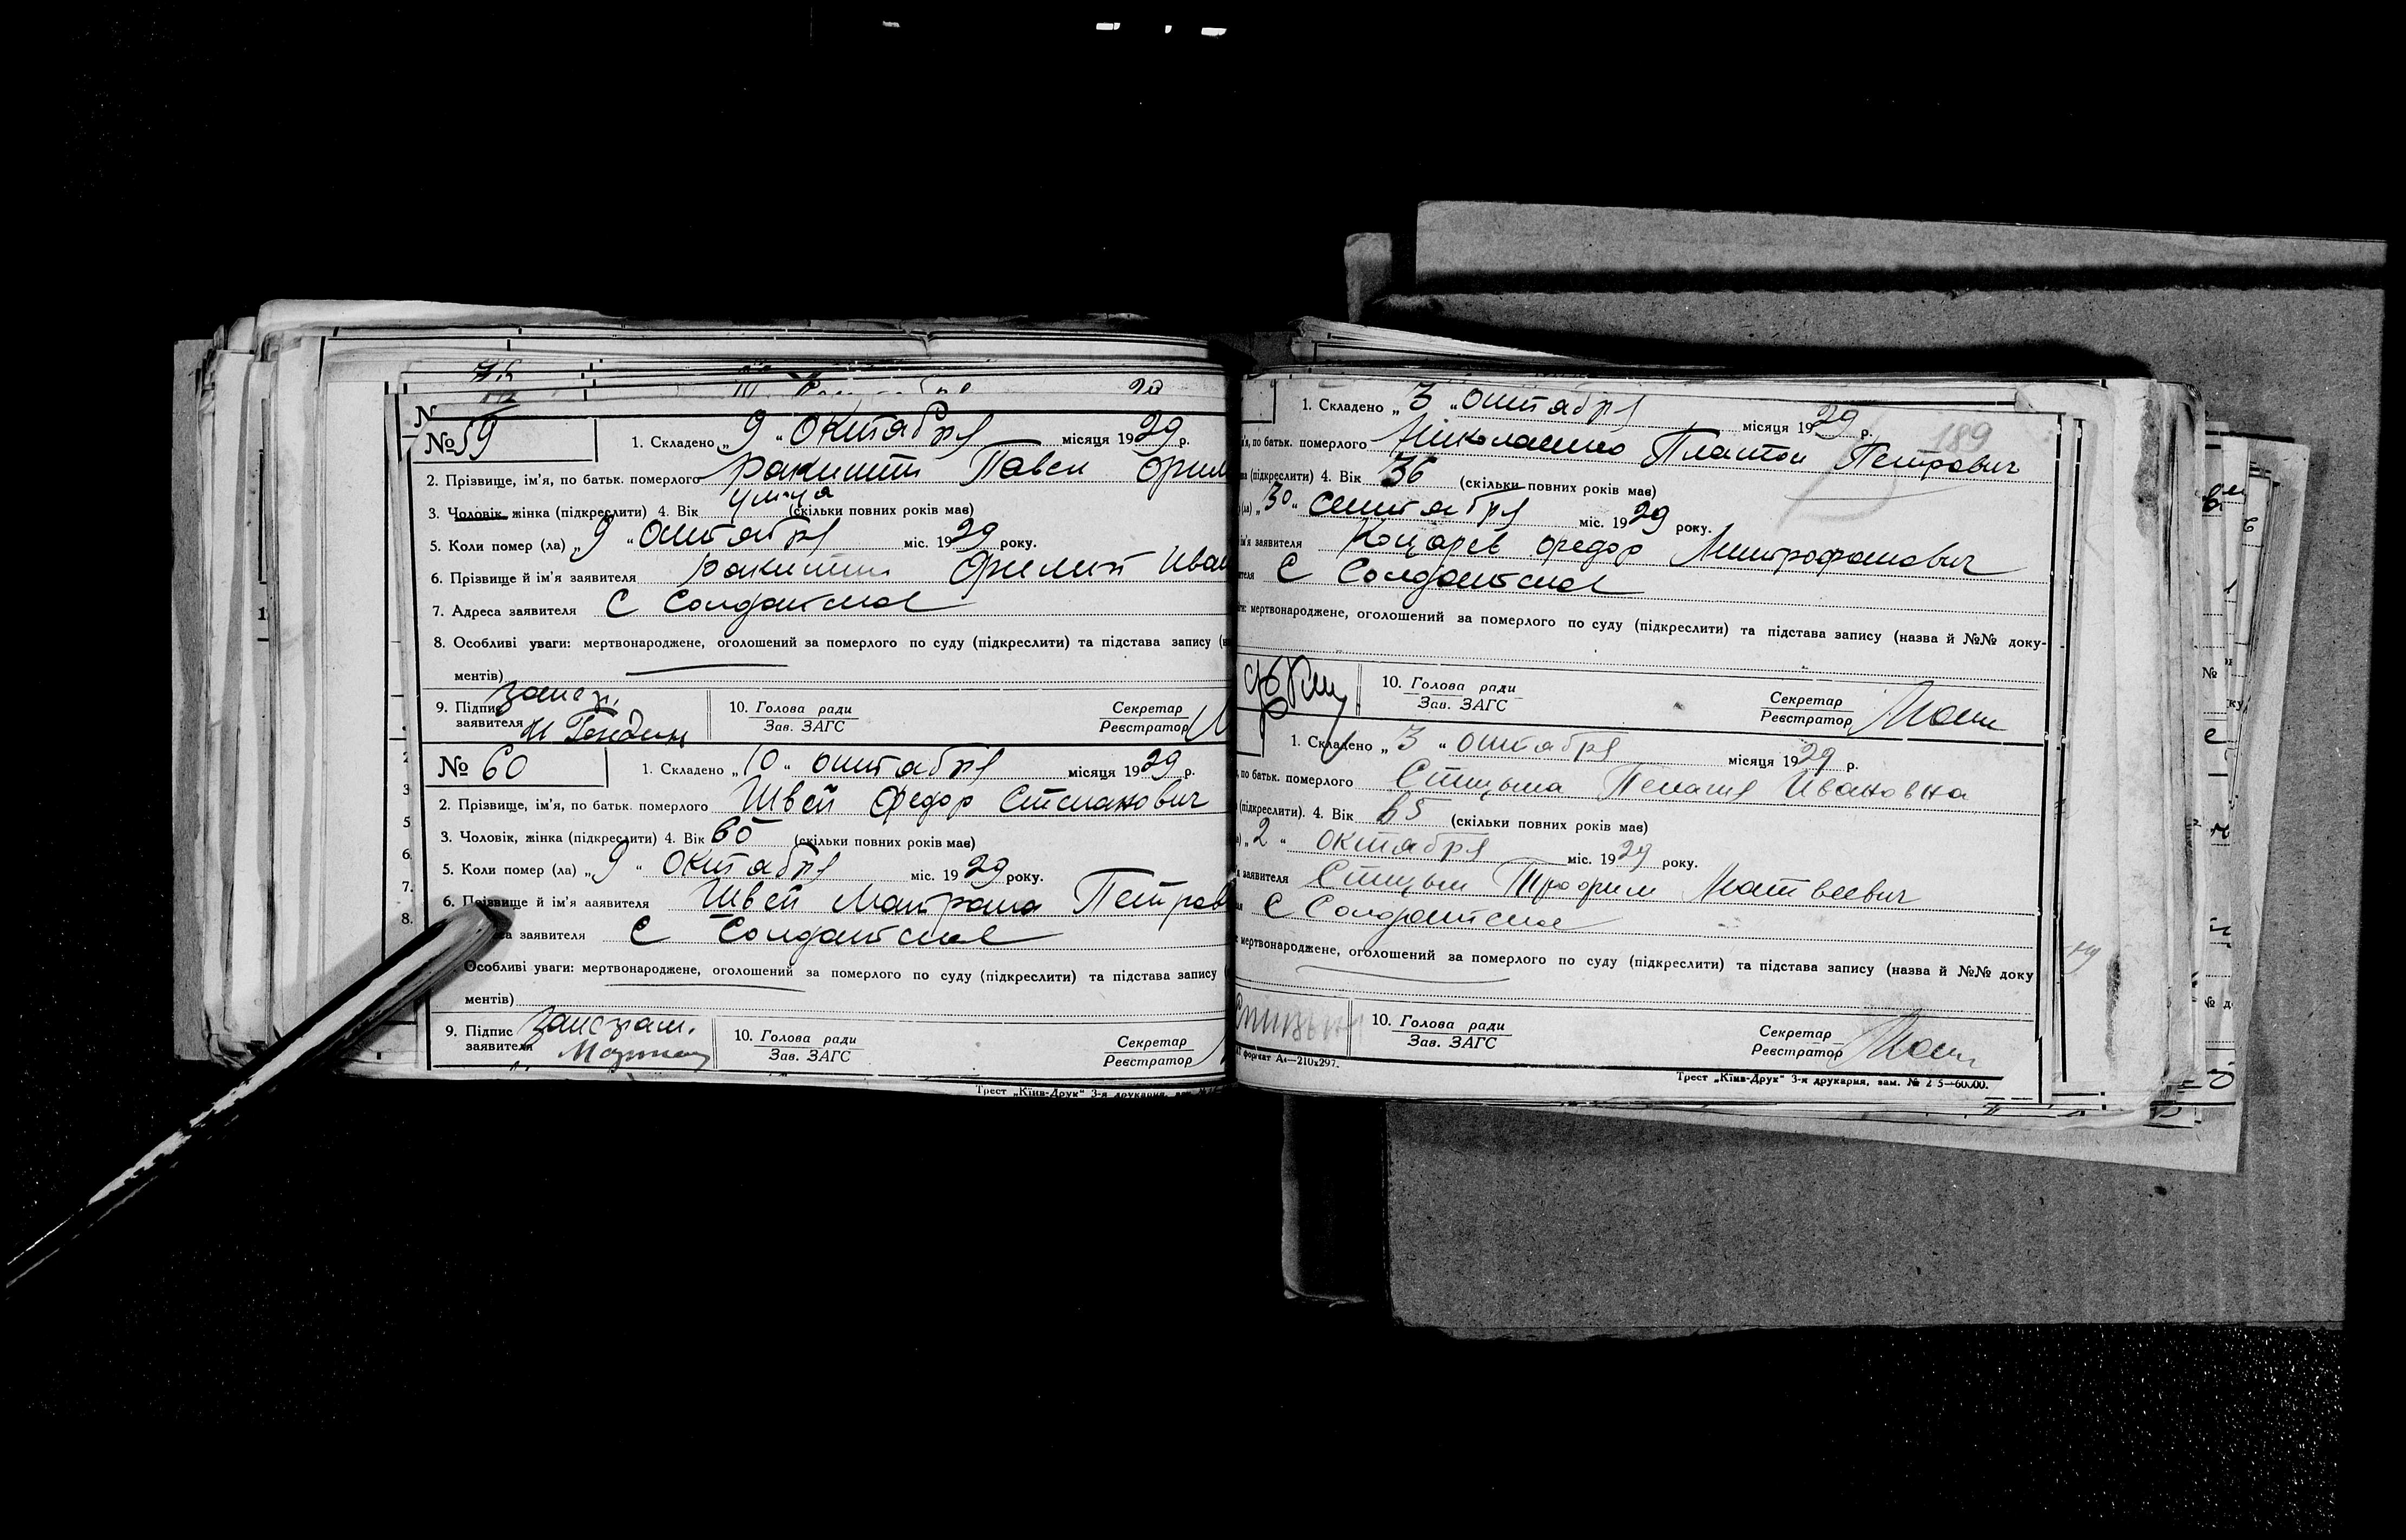 № 59
1. Складено „ 9 “ октября місяця 1929 р.
2. Прізвище, ім'я, по батьк. померлого Ракитин Павел Фили
3. Чоловік, жінка (підкреслити) 4. Вік (скільки повних років має)
5. Коли помер (ла) „ 9 “ октября міс. 1929 року.
6. Прізвище й ім'я заявителя Ракитин Филип Иван
7. Адреса заявителя С Солдатское
8. Особливі уваги: мертвонароджене, оголошений за померлого по суду (підкреслити) та підстава запису
ментів)
9. Підпис заявителя
10. Голова ради
Зав. ЗАГС
Секретар
Реєстратор
№ 60
1. Складено „ 10 “ октября місяця 1929 р.
2. Прізвище, ім'я, по батьк. померлого Швей Федор Степанович
3. Чоловік, жінка (підкреслити) 4. Вік 60 (скільки повних років має)
5. Коли помер (ла) „ 9 “ октября міс. 1929 року.
6. Прізвище й ім'я заявителя Швей Матрона Петров
заявителя С Солдатское
Особливі уваги: мертвонароджене, оголошений за померлого по суду (підкреслити) та підстава запису
ментів)
9. Підпис заявителя
10. Голова ради
Зав. ЗАГС
Секретар
Реєстратор
Трест „Київ-Друк“ 3-я друкарня,
1. Складено „ 3 “ октября місяця 1929 р.
189
по батьк. померлого Николаенко Платон Петрович
(підкреслити) 4. Вік 36 (скільки повних років має)
„ 30 “ сентября міс. 1929 року.
ім'я заявителя Федор Митрофанович
С Солдатское
мертвонароджене, оголошений за померлого по суду (підкреслити) та підстава запису (назва й №№ доку-
10. Голова ради
Зав. ЗАГС
Секретар
Реєстратор
1. Складено „ 3 “ октября місяця 1929 р.
по батьк. померлого Стицына Пелагия Ивановна
(підкреслити). 4. Вік 65 (скільки повних років має)
„ 2 “ октября міс. 1929 року.
заявителя Стицын Трофим Матвеевич
С Солдатское
мертвонароджене, оголошений за померлого по суду (підкреслити) та підстава запису (назва й №№ доку
10. Голова ради
Зав. ЗАГС
Секретар
Реєстратор
формат А4—210х297.
Трест „Київ-Друк“ 3-я друкарня, зам. №